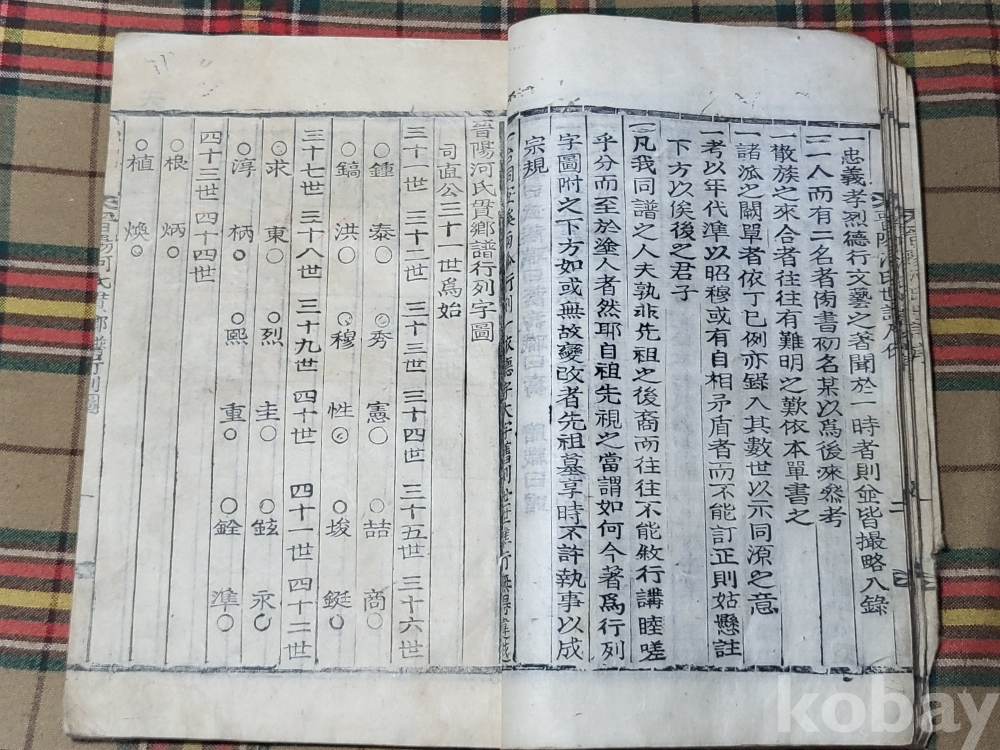 一忠義孝烈德行文藝之著聞於一時者則並皆撮略入錄
一一人而有二名者傍書初名某以爲後來叅考
一散族之來合者往往有難明之歎依本單書之
一諸派之闕單者依丁巳例亦錄入其數世以示同源之意
一考以年代準以昭穆或有自相矛盾者而不能訂正則姑懸註
下方以俟後之君子
凡我同譜之人夫孰非先祖之後裔而往往不能敘行講睦嗟
乎分而至於塗人者然耶自祖先視之當謂如何今著爲行列
字圖附之下方如或無故變改者先祖墓享時不許執事以成
宗規
晉陽河氏貫鄕譜行列字圖
司直公三十一世爲始
三十一世 三十二世 三十三世 三十四世 三十五世 三十六世
○鍾 泰○ ○秀 憲○ ○喆 商○
○鎬 洪○ ○穆 性○ ○埈 鋌○
三十七世 三十八世 三十九世 四十世 四十一世 四十二世
○求 東○ ○烈 圭○ ○鉉 永○
○淳 柄○ ○熙 重○ ○銓 準○
四十三世 四十四世
○根 炳○
○植 煥○
kobay